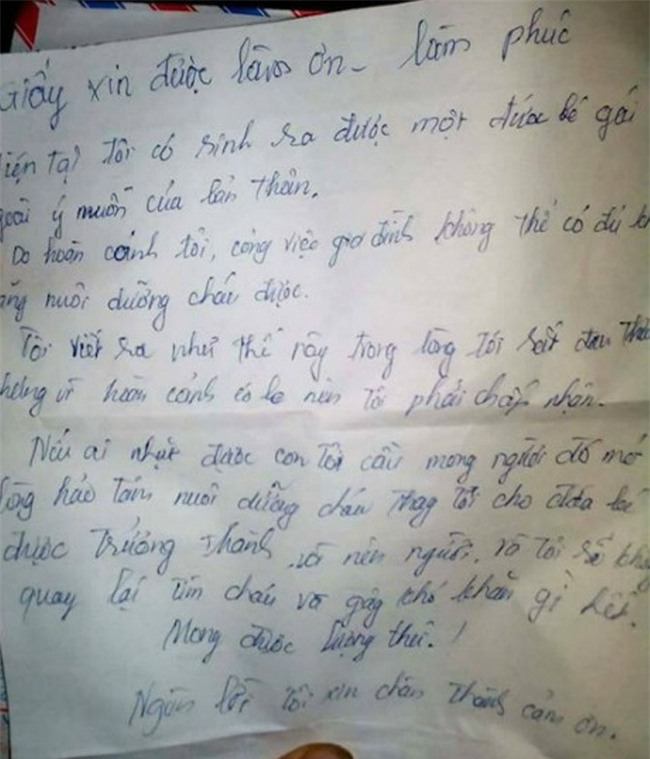 Giấy xin được làm ơn - làm phúc
iện tại tôi có sinh ra được một đứa bé gái
goài ý muốn của bản thân.
Do hoàn cảnh tôi, công việc gia đình không thể có đủ kh
ăng nuôi dưỡng cháu được.
Tôi viết ra như thế này trong lòng tôi rất đau
hưng vì hoàn cảnh éo le nên tôi phải chấp nhận.
Nếu ai nhặt được con tôi cầu mong người đó mở
lòng hảo tâm nuôi dưỡng cháu thay tôi cho đứa bé
được trưởng thành và nên người. Và tôi sẽ
quay lại tìm cháu và gây khó khăn gì hết.
Mong được lượng thứ.!
Ngàn lời tôi xin chân thành cảm ơn.